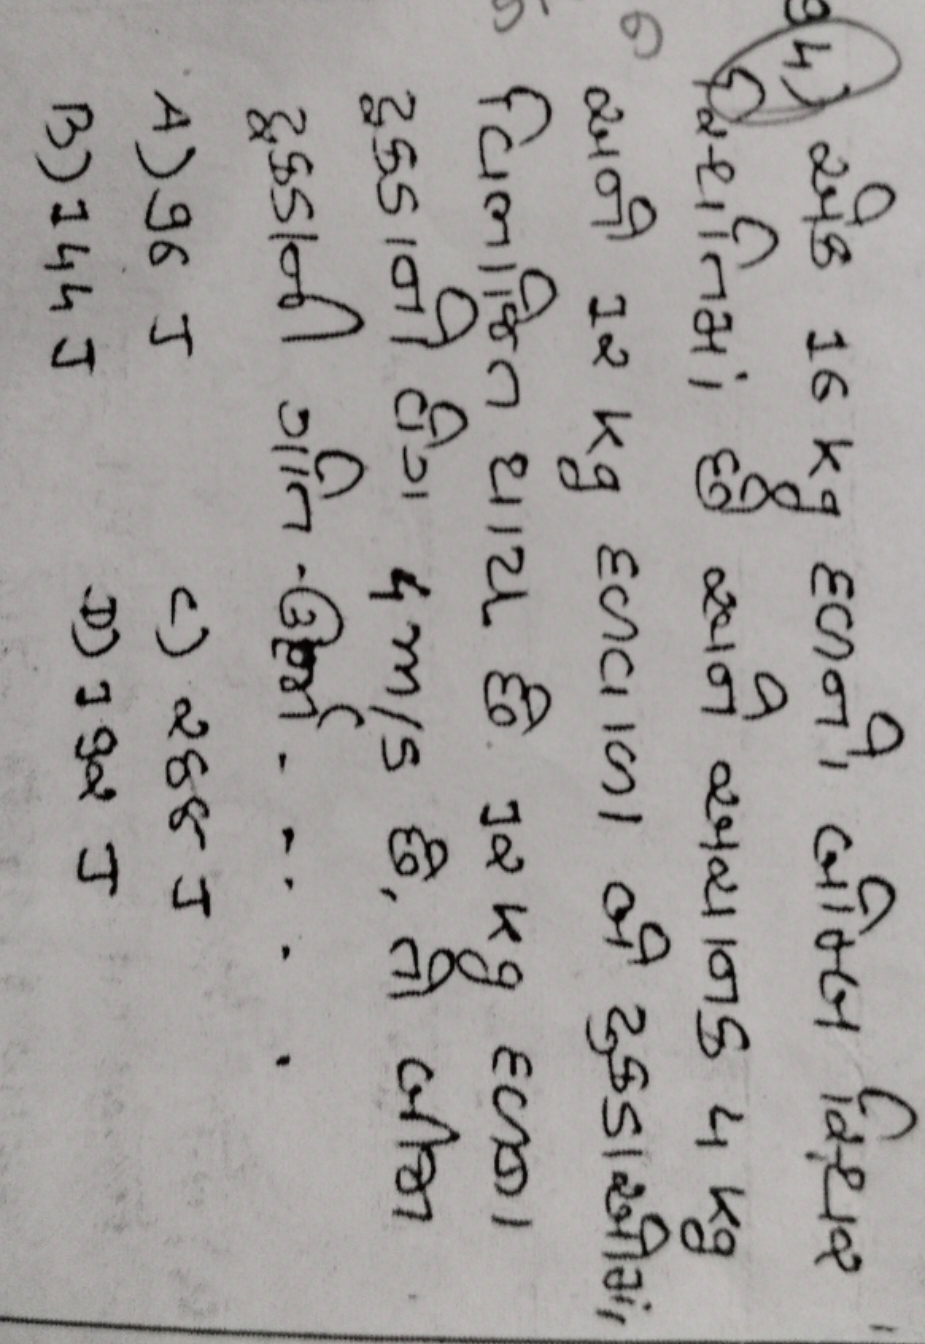 94) એક 16 kg દળનો બોમ્બ સ્થિર
સ્થિતિમાં છે અને અચાનક 4 kg
અને 12 kg દળવાળા બે ટુકડાઓમાં,
વિભાજિત થાય છે. 12 kg દળના
ટુકડાનો વેગ 4 m/s છે, તો બીજા
ટુકડાની ગતિ-ઊર્જા . . . . .
A) 96 J C) 288 J
B) 144 J D) 192 J